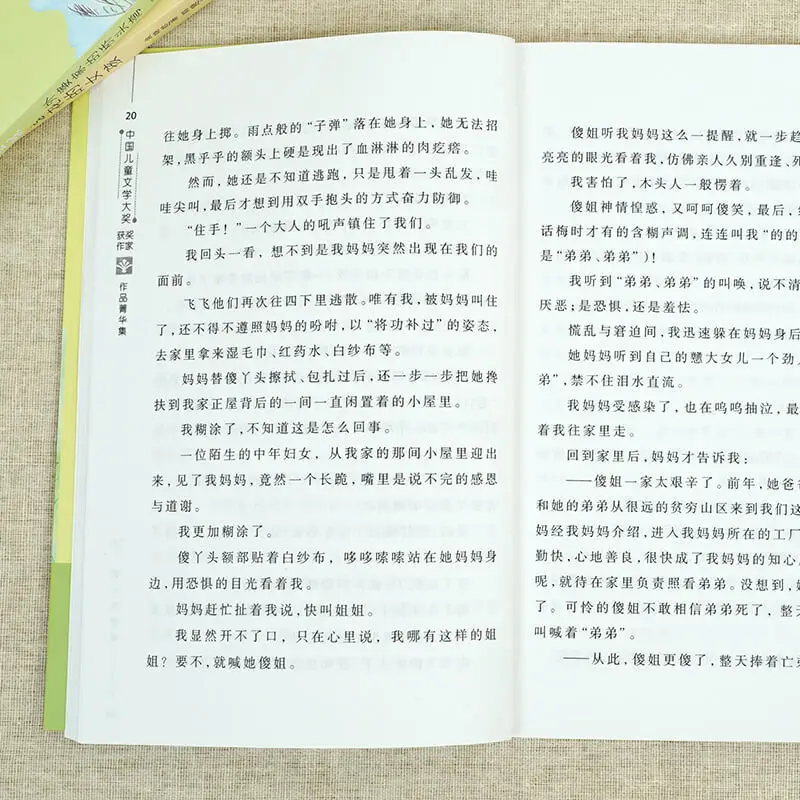 20
中国儿童文学大奖
获奖
作家
作品菁华集
往她身上掷。雨点般的“子弹”落在她身上，她无法招
架，黑乎乎的额头上硬是现出了血淋淋的肉疙瘩。
然而，她还是不知道逃跑，只是甩着一头乱发，哇
哇尖叫，最后才想到用双手抱头的方式奋力防御。
“住手！”一个大人的吼声镇住了我们。
我回头一看，想不到是我妈妈突然出现在我们的
面前。
飞飞他们再次往四下里逃散。唯有我，被妈妈叫住
了，还不得不遵照妈妈的吩咐，以“将功补过”的姿态，
去家里拿来湿毛巾、红药水、白纱布等。
妈妈替傻丫头擦拭、包扎过后，还一步一步把她搀
扶到我家正屋背后的一间一直闲置着的小屋里。
我糊涂了，不知道这是怎么回事。
一位陌生的中年妇女，从我家的那间小屋里迎出
来，见了我妈妈，竟然一个长跪，嘴里是说不完的感恩
与道谢。
我更加糊涂了。
傻丫头额部贴着白纱布，哆哆嗦嗦站在她妈妈身
边，用恐惧的目光看着我。
妈妈赶忙扯着我说，快叫姐姐。
我显然开不了口，只在心里说，我哪有这样的姐
姐？要不，就喊她傻姐。
傻姐听我妈妈这么一提醒，就一步趋
亮亮的眼光看着我，仿佛亲人久别重逢、死
我害怕了，木头人一般愣着。
傻姐神情惶惑，又呵呵傻笑，最后，
话梅时才有的含糊声调，连连叫我“的的
是“弟弟、弟弟”）！
我听到“弟弟、弟弟”的叫唤，说不清
厌恶；是恐惧，还是羞怯。
慌乱与窘迫间，我迅速躲在妈妈身后
她妈妈听到自己的戆大女儿一个劲
弟”，禁不住泪水直流。
我妈妈受感染了，也在呜呜抽泣，最
着我往家里走。
回到家里后，妈妈才告诉我：
——傻姐一家太艰辛了。前年，她爸爸
和她的弟弟从很远的贫穷山区来到我们这
妈经我妈妈介绍，进入我妈妈所在的工厂
勤快，心地善良，很快成了我妈妈的知心
呢，就待在家里负责照看弟弟。没想到，
了。可怜的傻姐不敢相信弟弟死了，整天
叫喊着“弟弟”。
——从此，傻姐更傻了，整天捧着亡弟